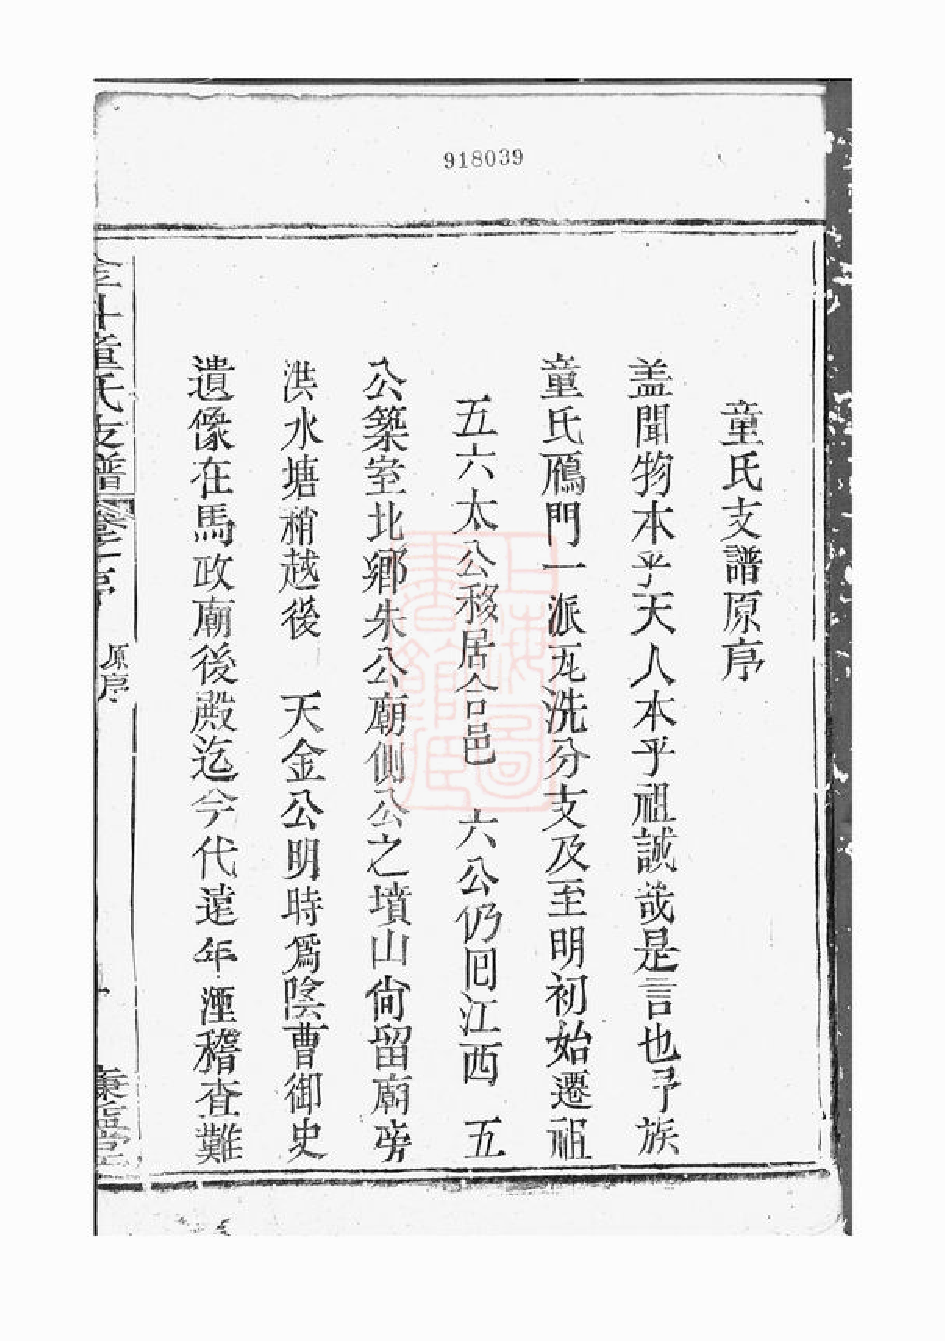 918039
童氏支譜原序
盖聞物本乎天人本乎祖誠哉是言也予族
童氏鴈門一派瓦洗分支及至明初始遷祖
五六太公移居合邑 六公仍囘江西 五
公築室北鄉朱公廟側公之墳山尙留廟旁
洪水塘稍越後 天金公明時爲陰曹御史
遺像在馬政廟後殿迄今代遠年湮稽查難
金斗童氏支譜 卷之一序 原序 一
上海圖書館藏